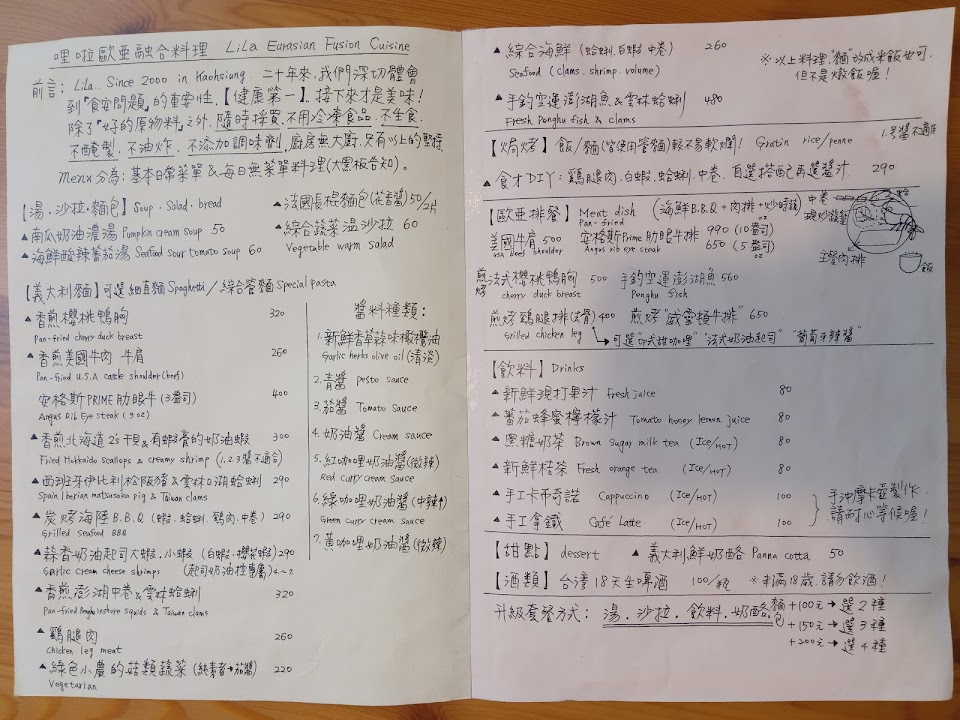 哩啦歐亞融合料理 LiLa Eurasian Fusion Cuisine
前言：LiLa... Since 2000 in Kaohsiung. 二十年來,我們深切體會
到『食安問題』的重要性.【健康第一】.接下來才是美味!
除了『好的原物料』之外,隨時採買.不用冷凍食品.不生食.
不醃製.不油炸.不添加調味劑.廚房無大廚.只有以上的堅持.
Menu分為:基本日常菜單&每日無菜單料理(大黑板告知)。
【湯.沙拉.麵包】Soup . Salad . bread
▲南瓜奶油濃湯 Pumpkin cream soup 50
▲海鮮酸辣蕃茄湯 Seafood Sour tomato soup 60
▲法國長棍麵包(花香醬) 50/2片
▲綜合蔬菜溫沙拉 60
Vegetable warm salad
【義大利麵】可選 細直麵 Spaghetti／綜合管麵 Special pasta
▲香煎櫻桃鴨胸 320
Pan-fried cherry duck breast
▲香煎美國牛肉 牛肩 260
Pan-fried U.S.A cattle shoulder (beef)
安格斯PRIME肋眼牛(3盎司) 400
Angus Rib Eye steak (3 oz)
▲香煎北海道2s干貝&有蝦膏的奶油蝦 300
Fried Hokkaido scallops & creamy shrimp (1.2.3醬不適合)
▲西班牙伊比利松阪豬&雲林口湖蛤蜊 290
Spain Iberian matsusaka pig & Taiwan clams
▲炭烤海陸B.B.Q (蝦.蛤蜊.鷄肉.中卷) 290
Grilled Seafood BBQ
▲蒜香奶油起司大蝦.小蝦(白蝦.櫻花蝦) 290
Garlic cream cheese shrimps (起司奶油控專屬) 4.~7.
▲香煎澎湖中卷&雲林蛤蜊 320
Pan-fried Penghu inshore squids & Taiwan clams
▲鷄腿肉 260
Chicken leg meat
▲綠色小農的菇類蔬菜(純素者→茄醬) 220
Vegetarian
醬料種類:
1.新鮮香草蒜味橄欖油
Garlic herbs olive oil (清淡)
2.青醬 pesto sauce
3.茄醬 Tomato Sauce
4.奶油醬 Cream sauce
5.紅咖哩奶油醬(微辣)
Red curry cream sauce
6.綠咖哩奶油醬(中辣↑)
Green curry cream sauce
7.黃咖哩奶油醬(微辣)
▲綜合海鮮(蛤蜊.白蝦.中卷) 260
Seafood (clams. shrimp. volume)
※以上料理"麵"改成米飯也可,
但不是燉飯喔!
▲手釣空運澎湖魚&雲林蛤蜊 480
Fresh Penghu fish & clams
【焗烤】飯/麵(皆使用管麵)較不易軟爛! Gratin rice/penne 1.號醬不適合
▲食才DIY:鷄腿肉.白蝦.蛤蜊.中卷.自選搭配再選醬汁 290
【歐亞排餐】Meat dish (海鮮B.B.Q+肉排+炒時蔬)
Pan-fried
美國牛肩 500 安格斯Prime肋眼牛排 990 (10盎司)
USA beef shoulder Angus rib eye steak 650 (5盎司)
oz
oz
中卷
蛤
主餐肉排
飯
煎烤法式櫻桃鴨胸 500 手釣空運澎湖魚 560
cherry duck breast Penghu fish
煎烤鷄腿排(去骨) 400 煎烤"威靈頓牛排" 650
Grilled chicken leg
→可選"印式甜咖哩" "法式奶油起司" "葡萄牙辣醬"
【飲料】Drinks
▲新鮮現打果汁 Fresh juice 80
▲蕃茄蜂蜜檸檬汁 Tomato honey lemon juice 80
▲黑糖奶茶 Brown Sugar milk tea (Ice/HOT) 80
▲新鮮桔茶 Fresh orange tea (Ice/HOT) 80
▲手工卡布奇諾 Cappuccino (Ice/HOT) 100
▲手工拿鐵 Café Latte (Ice/HOT) 100
手沖摩卡壺製作.
請耐心等候喔!
【甜點】dessert ▲義大利鮮奶酪 Panna cotta 50
【酒類】台灣18天生啤酒 100/瓶 ※未滿18歲.請勿飲酒!
升級套餐方式: 湯.沙拉.飲料.奶酪.麵包
+100元→選2種
+150元→選3種
+200元→選4種